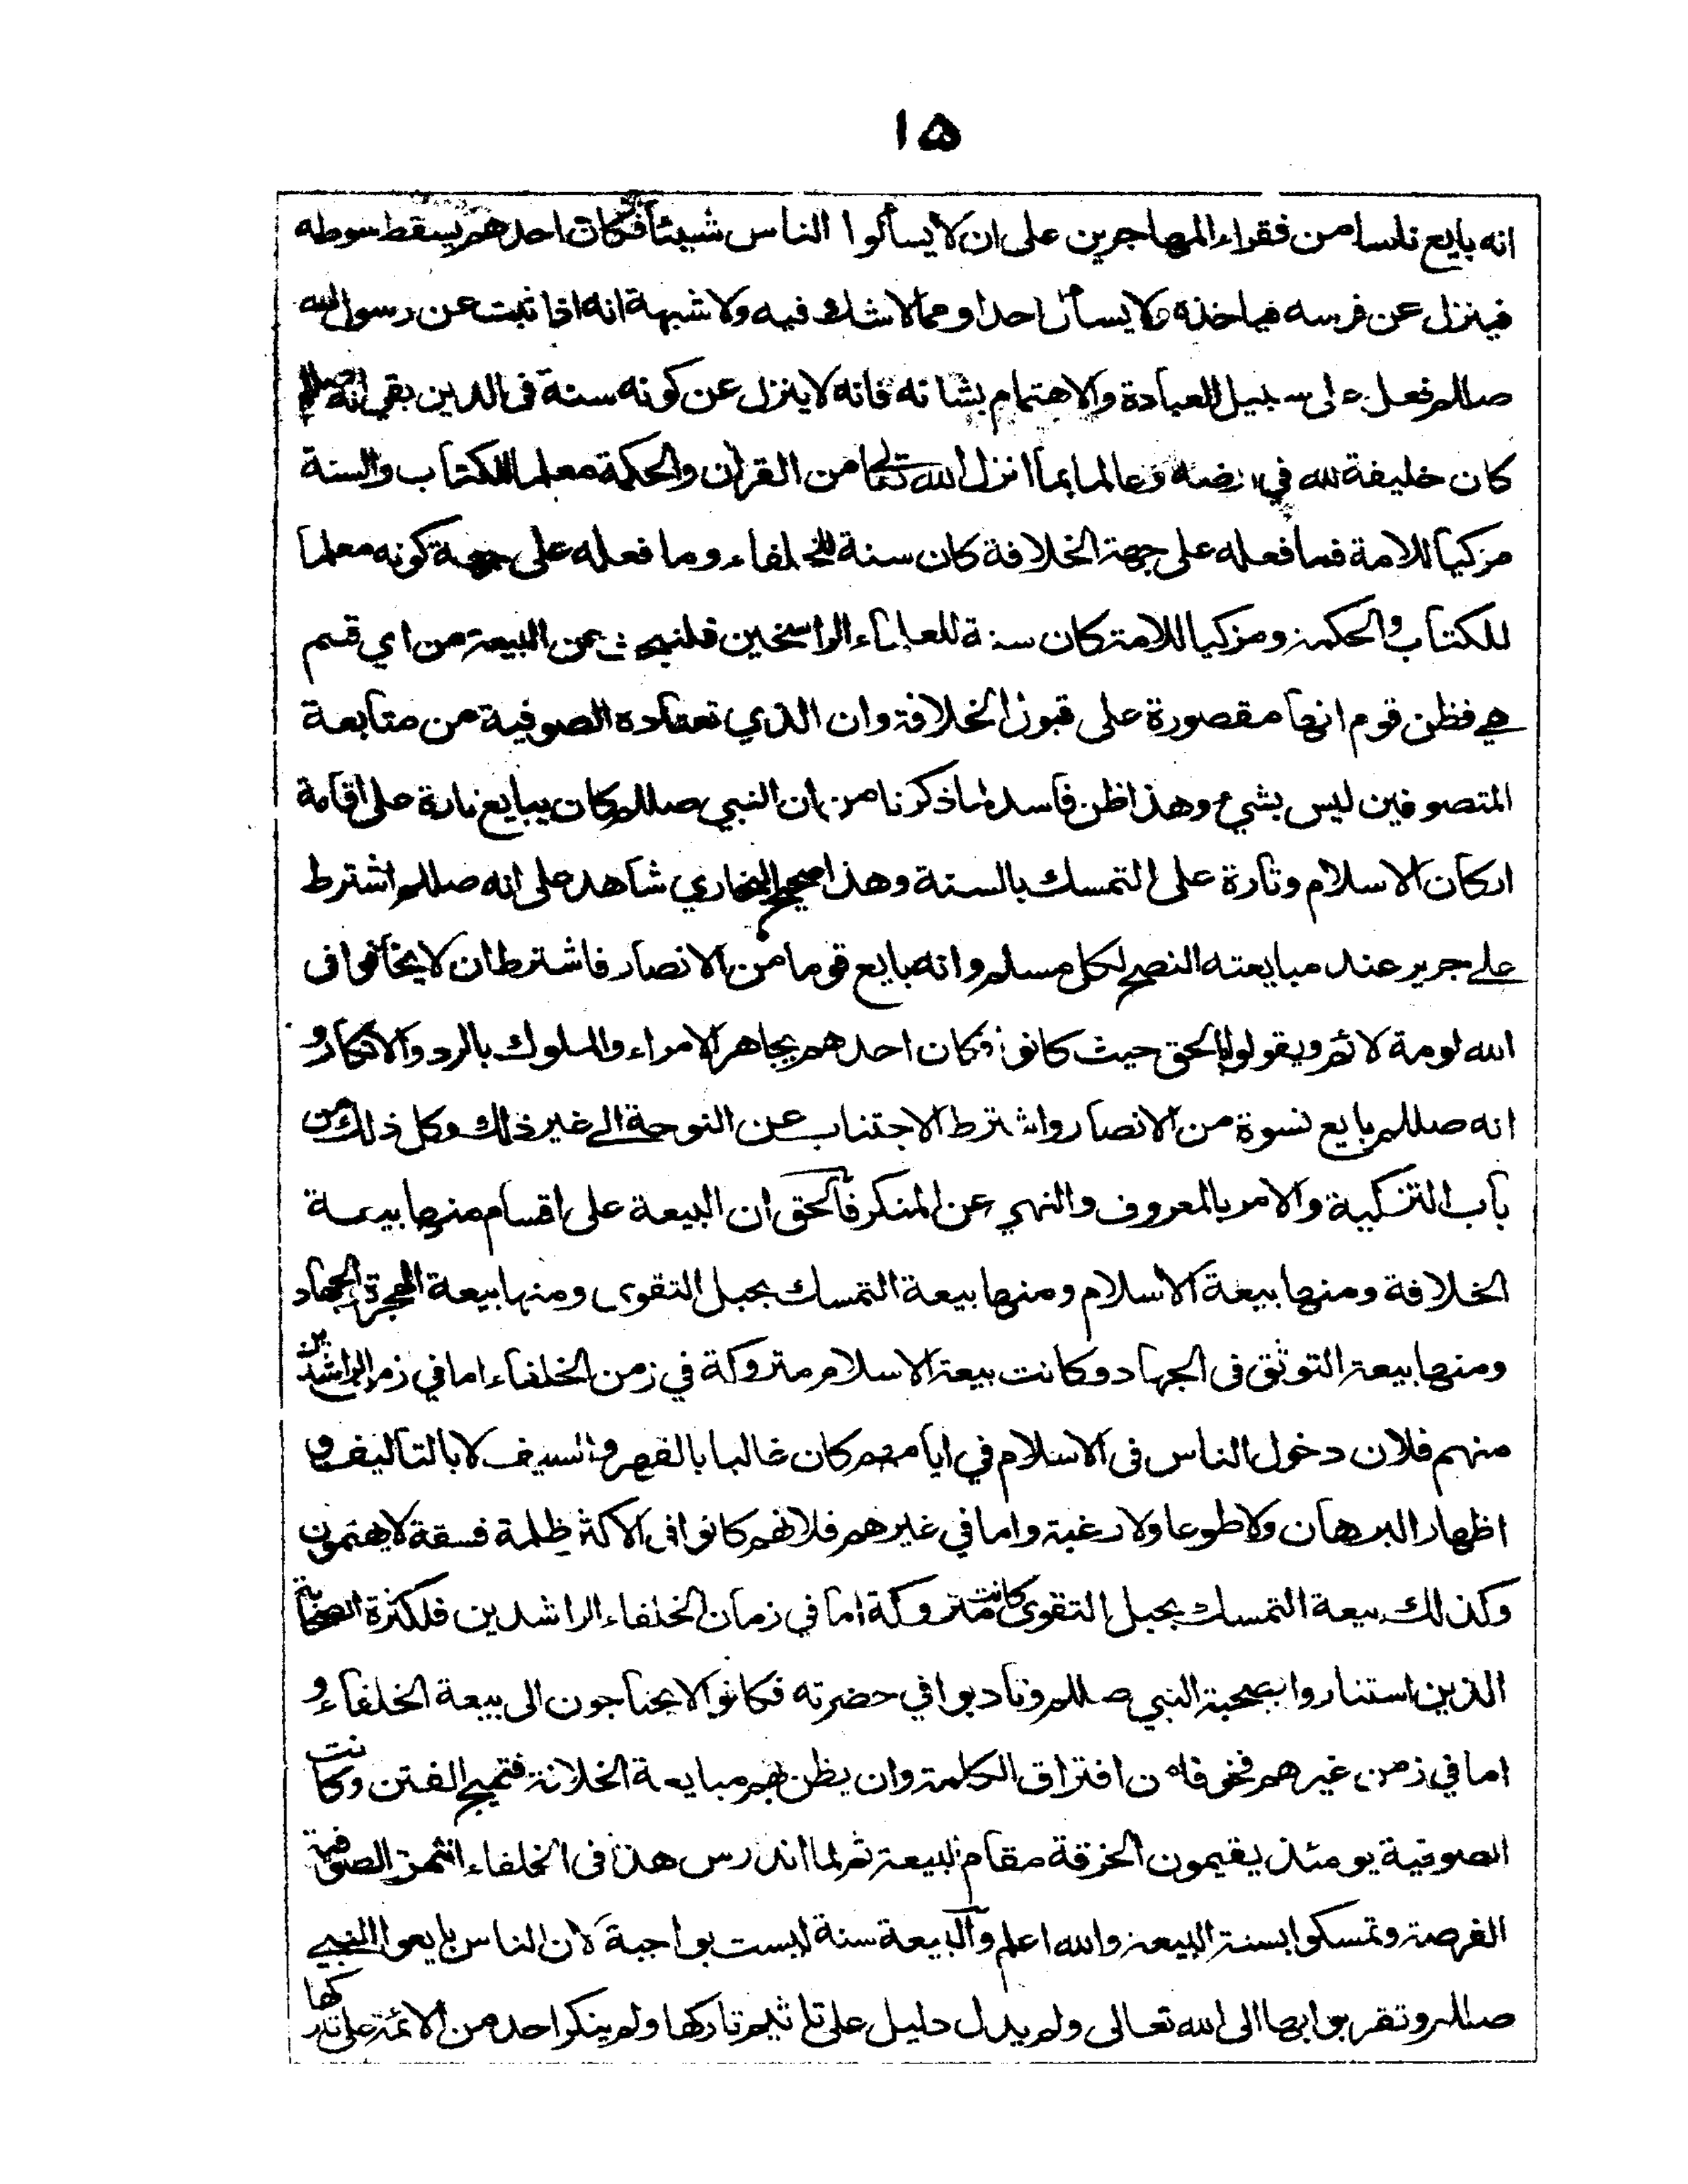 ۱۵
انه بايع ناسا من فقراء المهاجرين على ان لا يسألوا الناس شيئا فكان احدهم يسقط سوطه
فينزل عن فرسه فياخذه ولا يسأل احدا ومما لا شك فيه ولا شبهة انه اذا ثبت عن رسول الله
صللم فعل على سبيل العبادة والاهتمام بشانه فانه لا ينزل عن كونه سنة فى الدين بقي انه صللم
كان خليفة لله في ارضه وعالما بما انزل الله تعالى من القرآن والحكمة معلما للكتاب والسنة
مزكيا للامة فما فعله على جهة الخلافة كان سنة للخلفاء وما فعله على جهة كونه معلما
للكتاب والحكمة ومزكيا للامة كان سنة للعلماء الراسخين فلنبحث عن البيعة من اي قسم
هي فظن قوم انها مقصورة على قبول الخلافة وان الذي تعتاده الصوفية من متابعة
المتصوفين ليس بشيء وهذا ظن فاسد لما ذكرنا من ان النبي صللم كان يبايع تارة على اقامة
اركان الاسلام وتارة على التمسك بالسنة وهذا صحيح البخاري شاهد على انه صللم اشترط
على جرير عند مبايعته النصح لكل مسلم وانه بايع قوما من الانصار فاشترط ان لا يخافوا فى
الله لومة لائم ويقولوا بالحق حيث كانوا فكان احدهم يجاهر الامراء والملوك بالرد والانكار و
انه صللم بايع نسوة من الانصار واشترط الاجتناب عن النوحة الى غير ذلك وكل ذلك من
باب التزكية والامر بالمعروف والنهي عن المنكر فالحق ان البيعة على اقسام منها بيعة
الخلافة ومنها بيعة الاسلام ومنها بيعة التمسك بحبل التقوى ومنها بيعة الهجرة والجهاد
ومنها بيعة التوثق فى الجهاد وكانت بيعة الاسلام متروكة في زمن الخلفاء اما في زمن الراشدين
منهم فلان دخول الناس فى الاسلام في ايامهم كان غالبا بالقهر والسيف لا بالتاليف و
اظهار البرهان ولا طوعا ولا رغبة واما في غيرهم فلانهم كانوا فى الاكثر ظلمة فسقة لا يهتمون
وكذلك بيعة التمسك بحبل التقوى كانت متروكة اما في زمان الخلفاء الراشدين فلكثرة الصحابة
الذين استناروا بصحبة النبي صللم وتادبوا في حضرته فكانوا لا يحتاجون الى بيعة الخلفاء و
اما في زمن غيرهم فخوفا من افتراق الكلمة وان يظن بهم مبايعة الخلافة فتهيج الفتن وكانت
الصوفية يومئذ يقيمون الخرقة مقام البيعة ثم لما اندرس هذا فى الخلفاء انتهز الصوفية
الفرصة وتمسكوا بسنة البيعة والله اعلم والبيعة سنة ليست بواجبة لان الناس بايعوا النبي
صللم وتقربوا بها الى الله تعالى ولم يدل دليل على تاثيم تاركها ولم ينكر احد من الائمة على تاركها